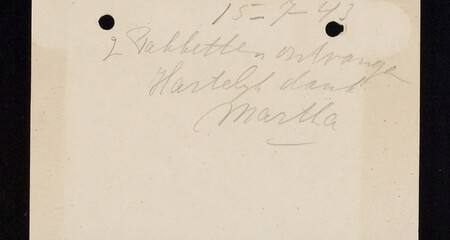 15-7-43
2 Pakketten ontvangen
Hartelyk dank
Martha